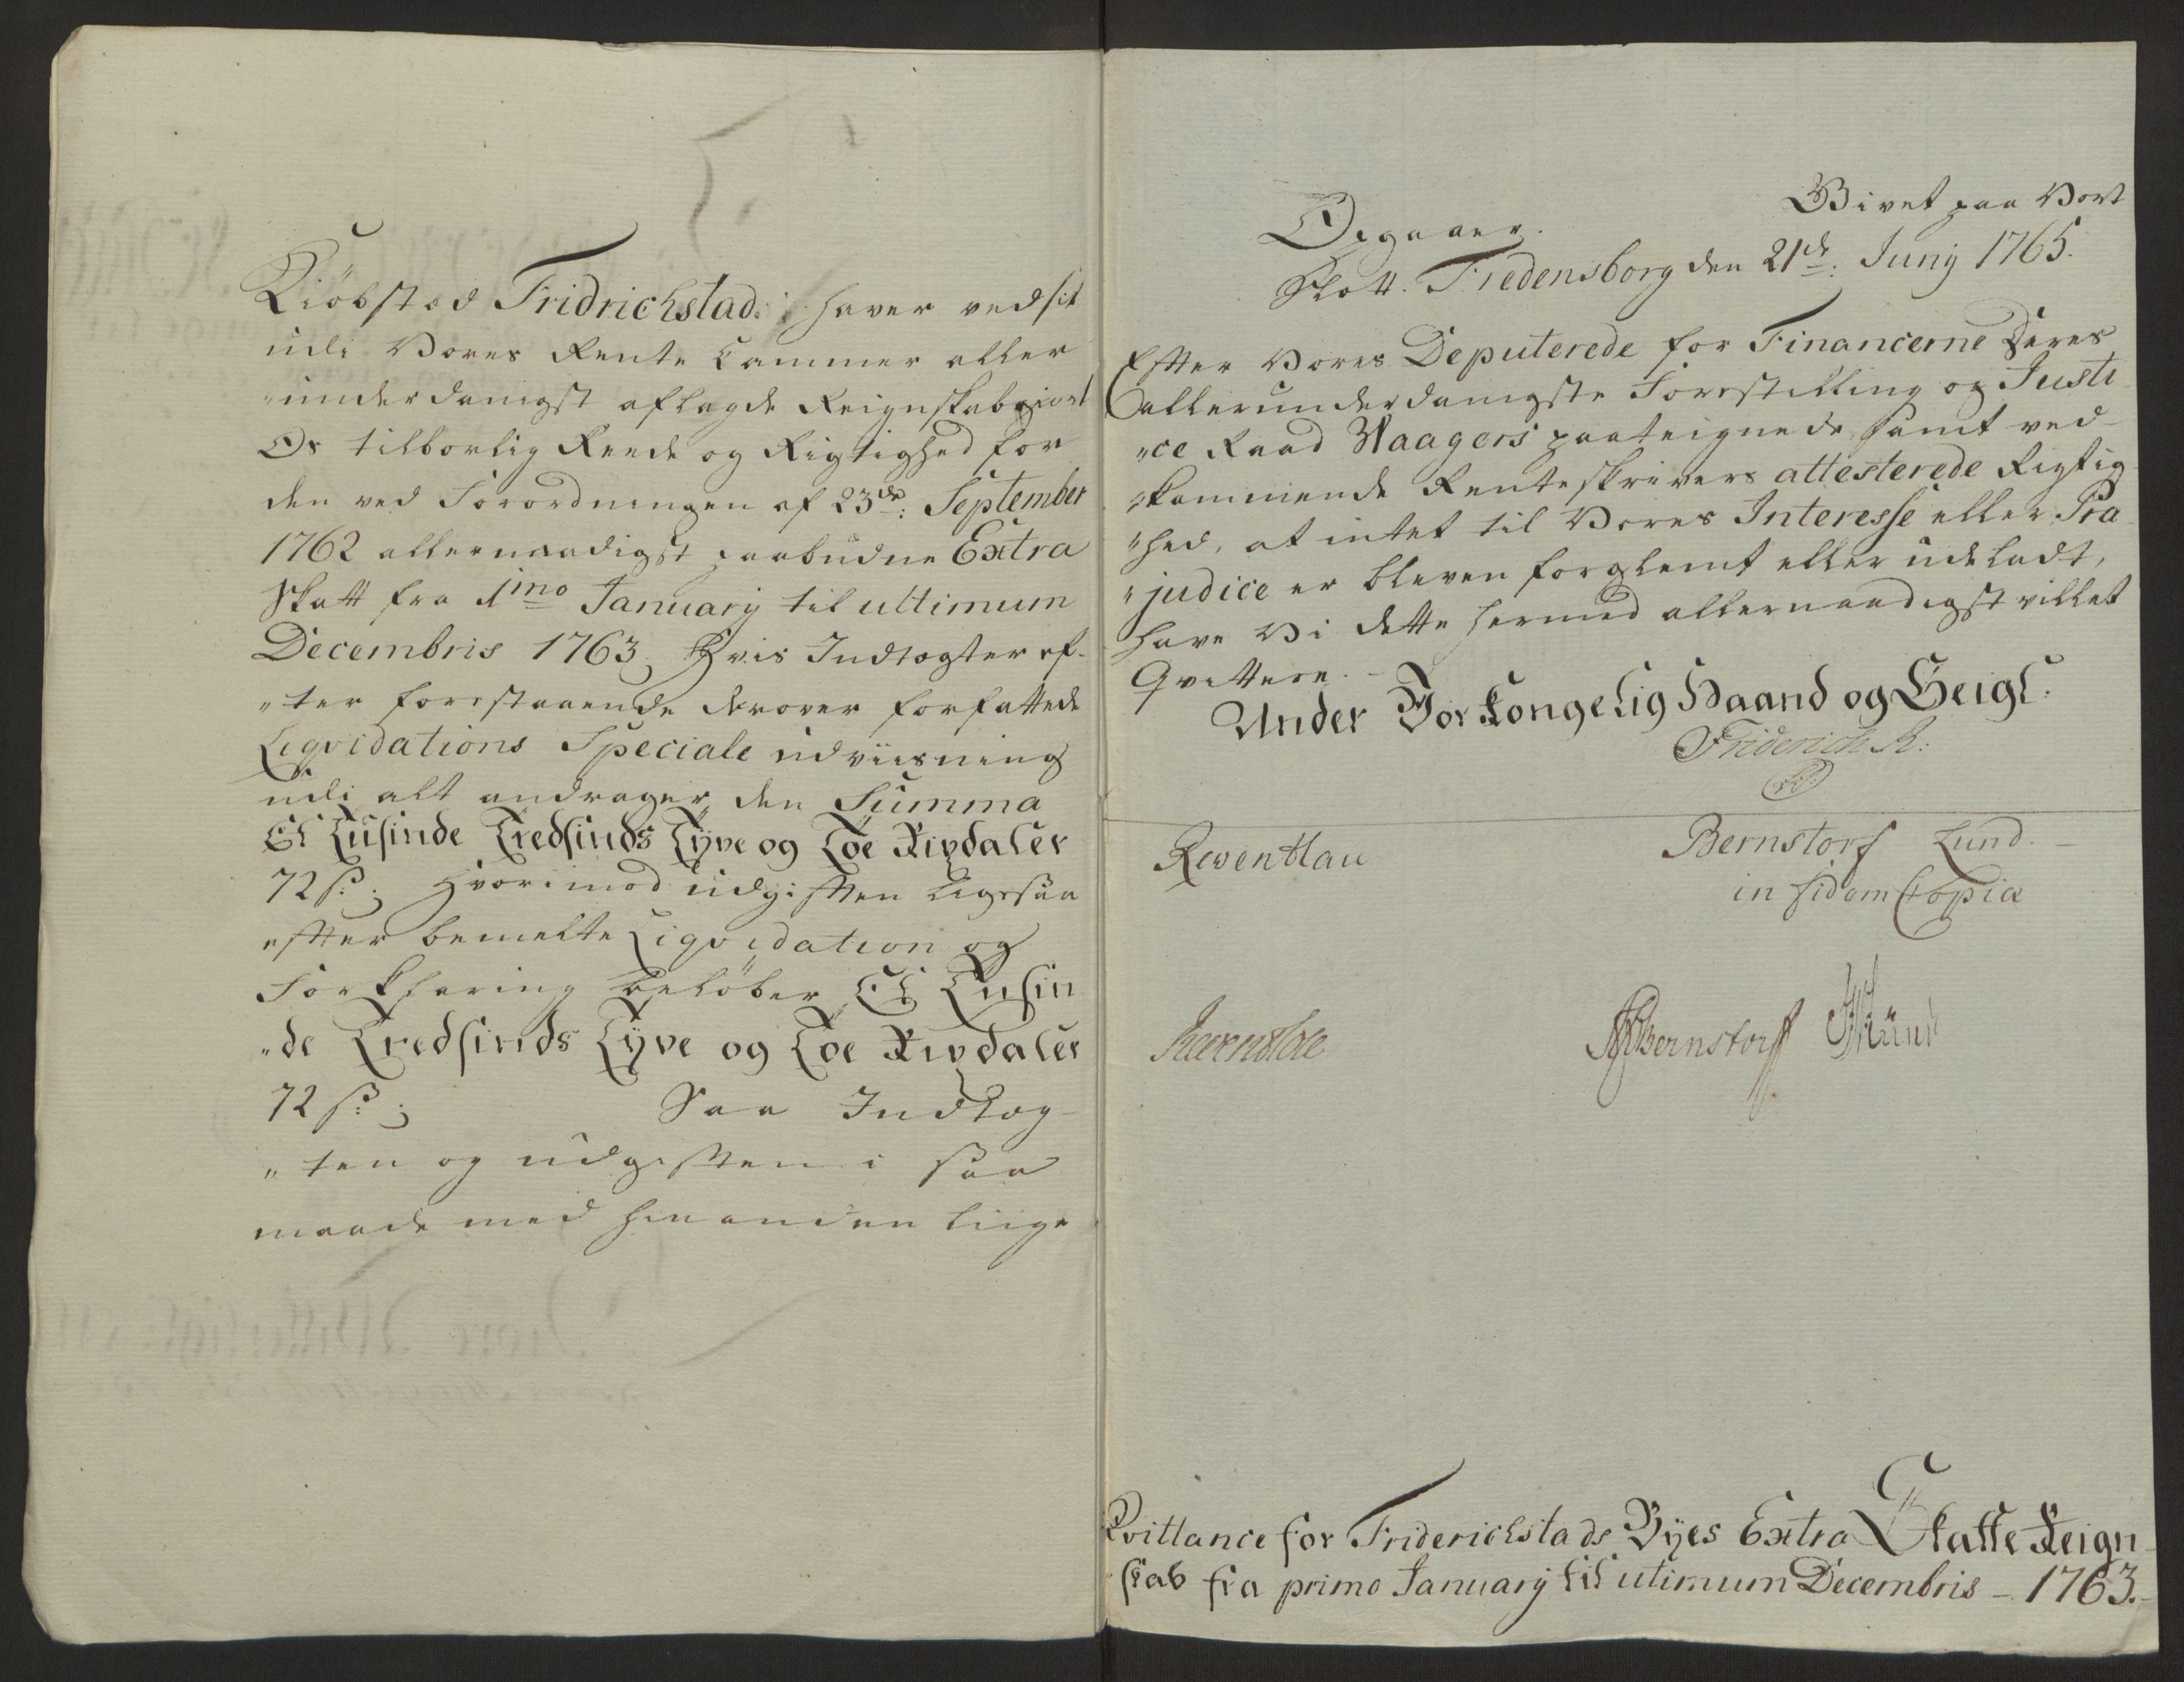 Kiöbstæd Fridrichstad: haver ved sit
udi Vores Rente Cammer aller
"underdanigst aflagde Reignskab giort
Os tilborlig Reede og Rigtighed for
den ved Forordningen af 23de: September
1762 allernaadigst paabudne Extra
Skatt fra 1mo January til ultimum
Decembris 1763. Hvis Indtægter ef-
"ter forestaaende derover forfattede
Liqvidations Speciale udviisning
udi alt andrager den Summa
Et Tusinde Tredsinds Tyve og Toe Rixdaler
72 s: ; Hvorimod udgiften ligesaa
efter bemelte Liqvidation og
Forklaring beløber Et Tusin
"de Tredsinds Tyve og Toe Rixdaler
72 s: ; Saa Indtæg-
"ten og udgiften i saa
maade med hinanden liige
Opgaaer. Givet paa Vort
Slott Fredensborg den 21de: Juny 1765.
Efter Vores Deputerede for Financerne Deres
allerunderdanigste Forestilling og Justi
"ce Raad Waagers paateignede, samt ved-
"kommende Renteskrivers attesterede Rigtig
"hed, at intet til Vores Interesse eller Præ
"judice er bleven forglemt eller udeladt,
have Vi dette hermed allernaadigst villet
Qvittere.
Under Vor Kongelig Haand og Seigl:
Friderich R:
Reventlau Bernstorf Lund.
in fidem Copiæ
Reventlow Bernstorff Lund
Qvittance for Friderichstads Byes Extra Skatte Reign-
"skab fra primo January til utimum Decembris - 1763.-